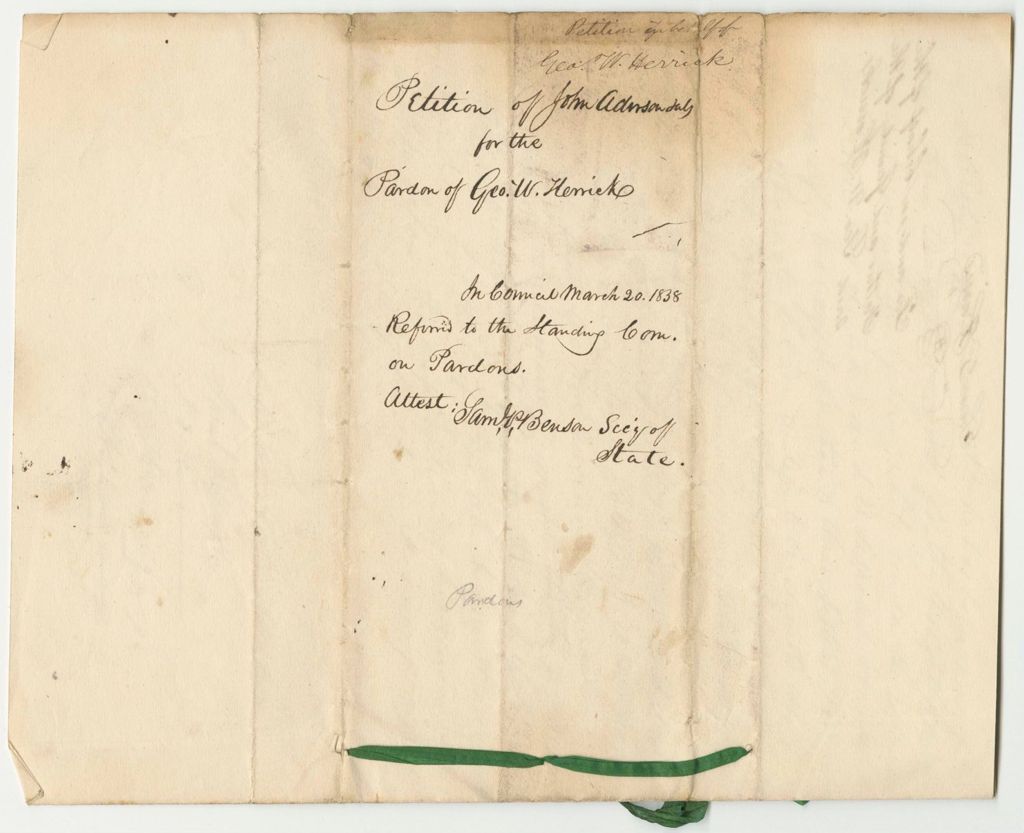 Petition in behalf of
Geo. W. Herrick
Petition of John Aderson &als
for the
Pardon of Geo. W. Herrick
In Council March 20. 1838
Referred to the Standing Com.
on Pardons.
Attest: Saml. P. Benson Secy of
State.
Pardons